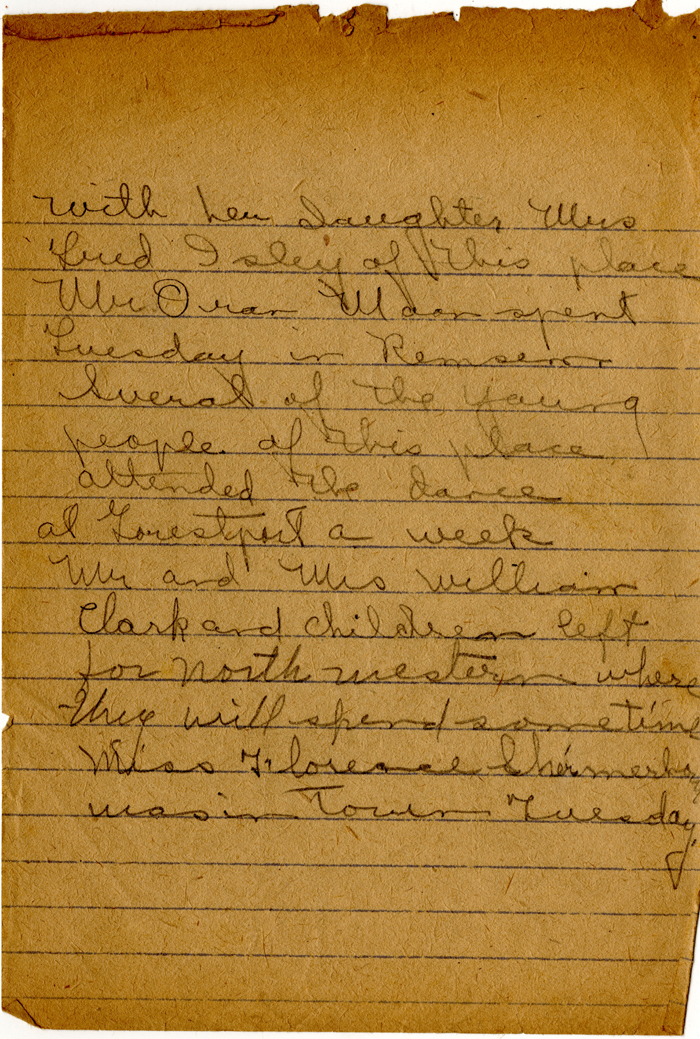 with her daughter Mrs
Fred Isley of this place
Mr Oran Moon spent
Tuesday in Remsen
Several of the young
people of this place
attended the dance
at Forestport a week
Mr and Mrs William
Clark and children left
for North western where
they will spend sometime
Miss Florence
was in Town Tuesday.